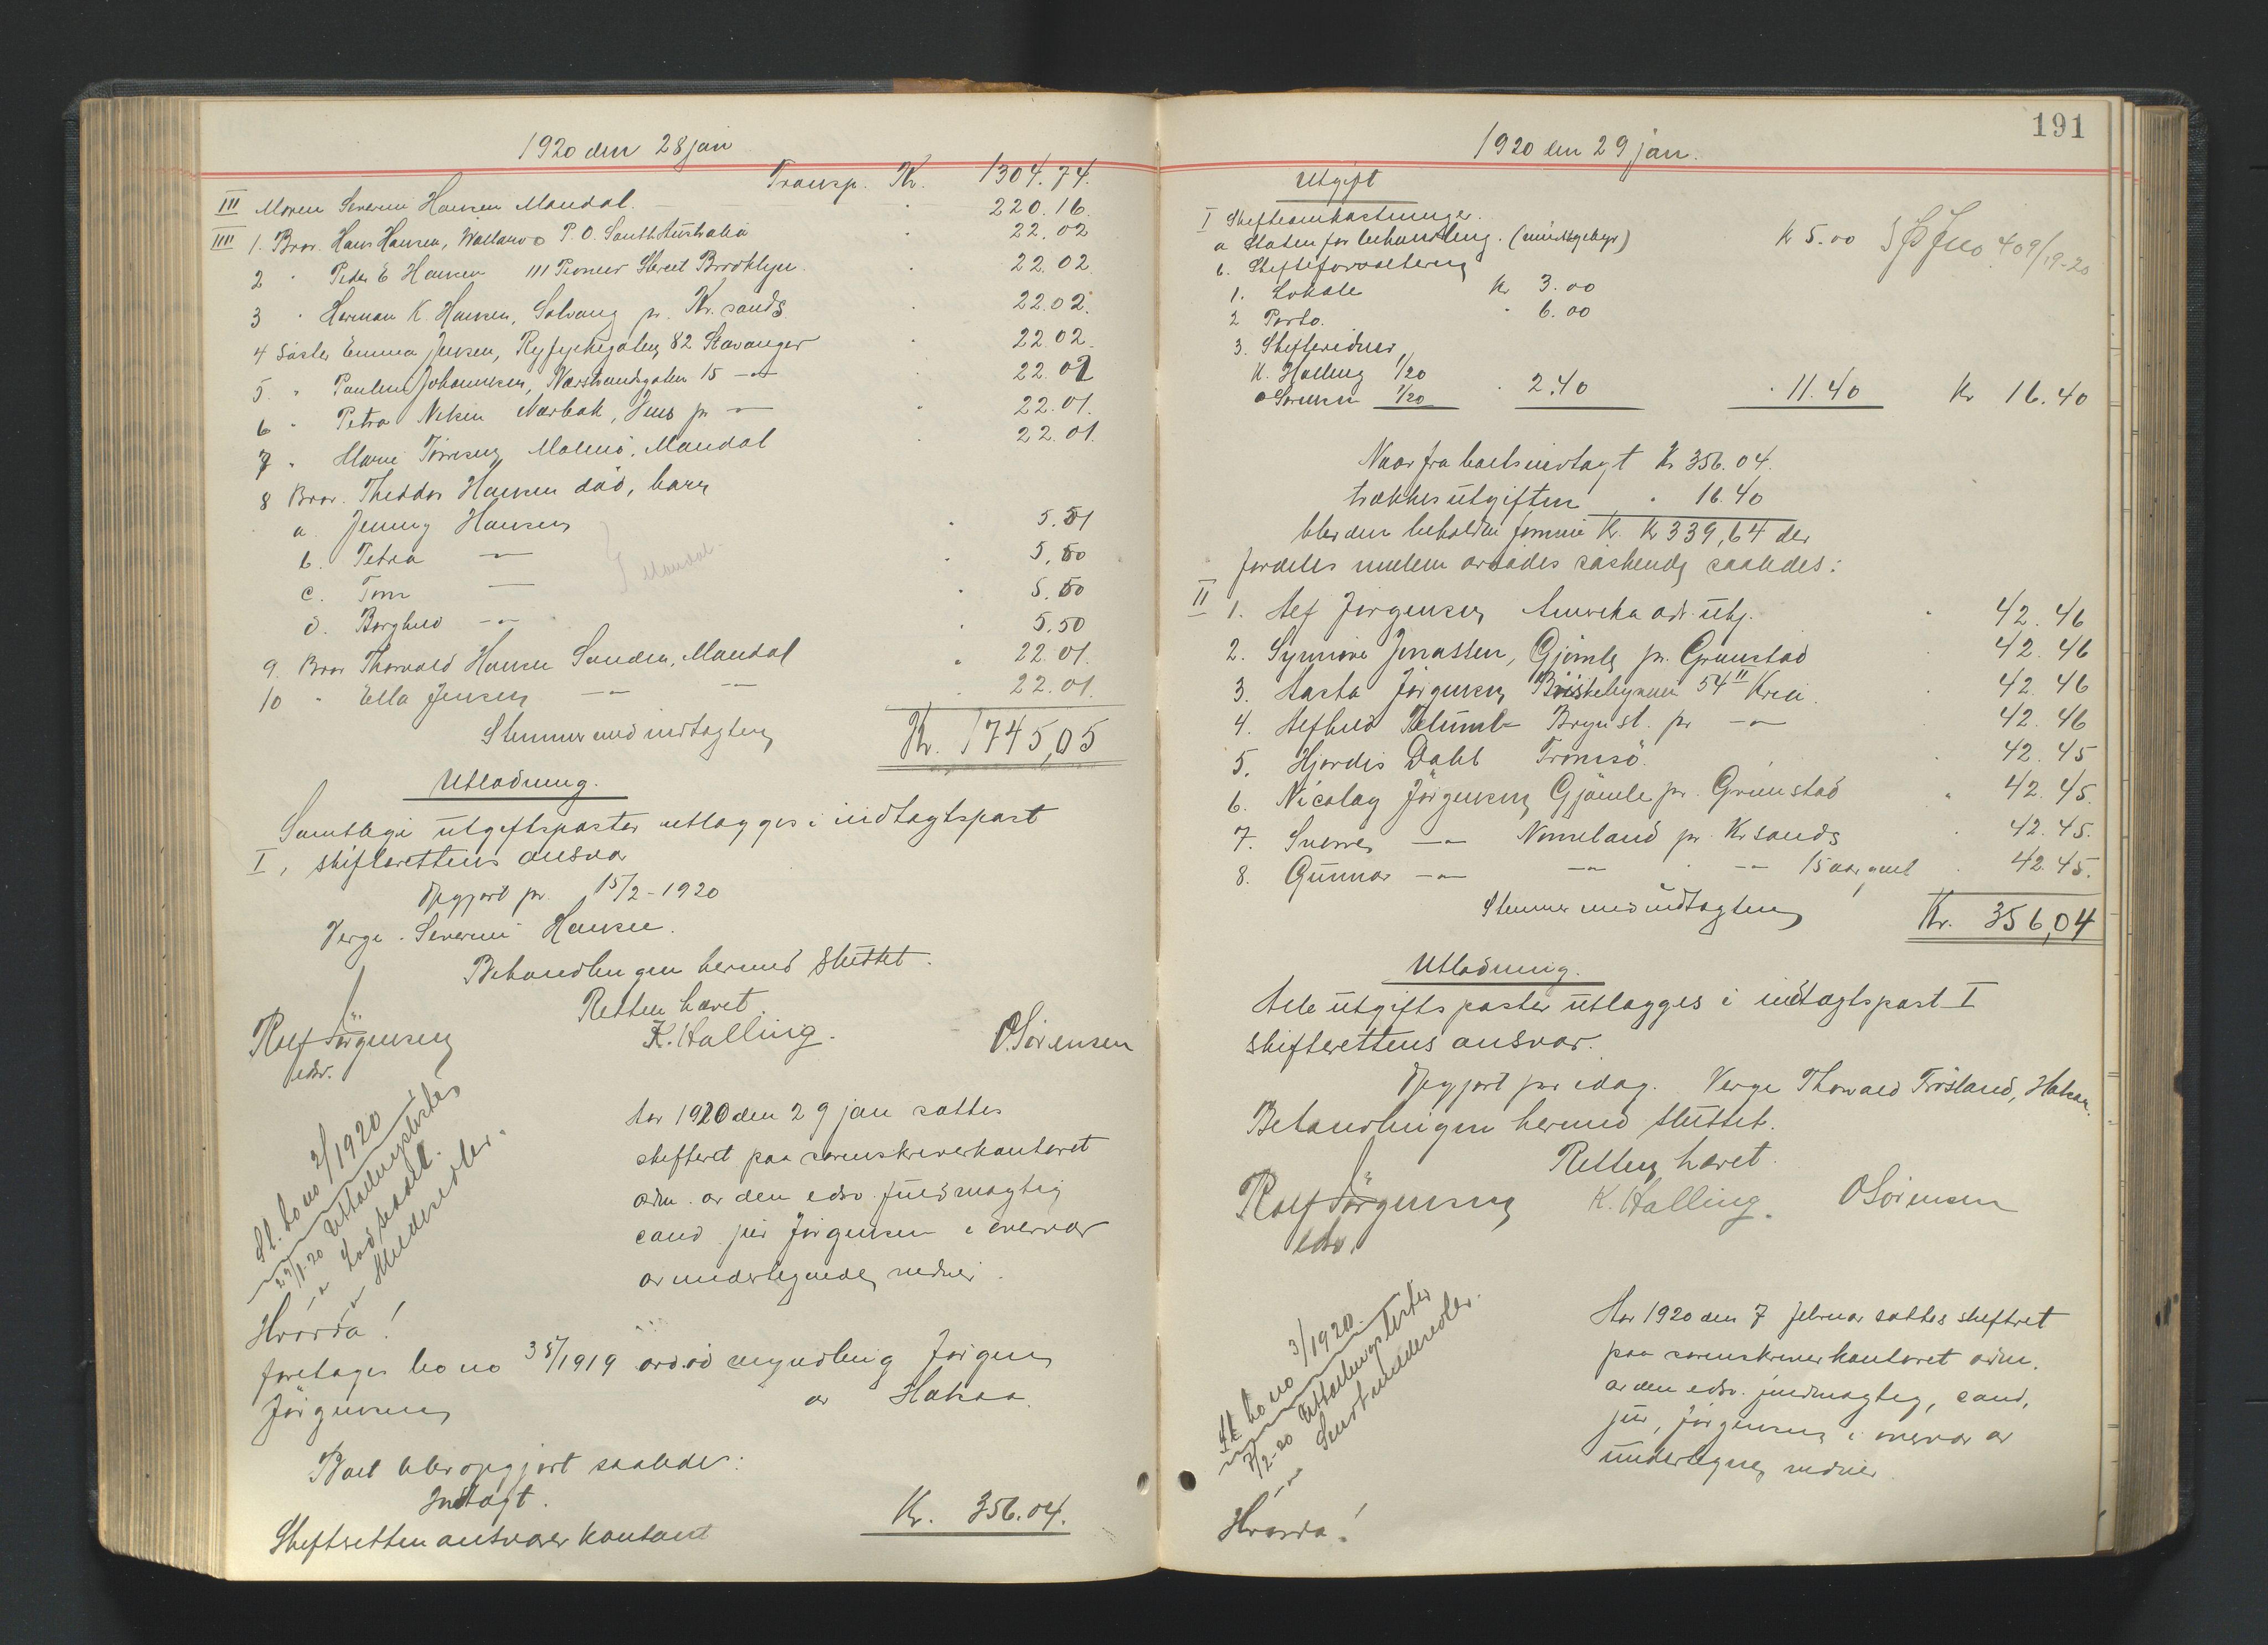 1920 den 28 jan
Transp. Kr. 1304.74.
III Moren Severine Hansen Mandal. 220.16.
IIII 1. Bror. Hans Hansen, P.O. South Australia 22.02
2 " Peder E Hansen 111 Pioneer Street Brooklyn. 22.02
3 " Herman K. Hansen, Solvang pr. Kr.sands. 22.02.
4 Söster Emma Jensen, Ryfylkegaten 82 Stavanger 22.02.
5. " Pauline Johannesen, 15 -"- 22.02
6 " Petra Nærbø, pr -"- 22.01.
7 " Marie Malmö, Mandal 22.01.
8 Bror. Theodor Hansen död, barn
a Jenny Hansen 5.51
b. Petra -"- 5.50
c. Tom -"- 5.50
d. Borghild -"- 5.50
Mandal.
9. Bror Thorvald Hansen Sanden, Mandal 22.01.
10 " Ella Jensen -"- -"- 22.01.
Stemmer med indtægten Kr. 1745,05
Utlodning.
Samtlige utgiftsposter utlægges i indtægtspost
I, skifterettens ansvar
Opgjort pr. 15/2-1920
Verge. Severine Hansen.
Behandlingen hermed sluttet.
Retten hævet.
Rolf Jörgensen K. Halling. O Sörensen
edsv.
Sk. bo no 2/1920
29/1-20 Utlodningslister
-"- Lodseddel.
-"- Meddelelser.
Aar 1920 den 29 jan sattes
skifteret paa sorenskriverkontoret
adm. av den edsv. fuldmægtig
cand. jur Jörgensen i overvær
av undertegnede vidner.
Hvorda!
foretages bo no 38/1919 avdød myndling Jörgen
Jörgensen av Halsaa.
Boet blev opgjort saaledes:
Indtægt.
Skifteretten ansvarer kontant Kr. 356.04.
191
1920 den 29 jan.
Utgift
I Skifteomkostninger.
a Staten for behandling. (mindstegebyr) Kr 5.00 409/19-20
b. Skifteforvaltning
1. Lokale Kr 3.00
2 Porto. " 6.00
3. Skiftevidner
K. Halling 1/20
O Sörensen 1/20 " 2.40 " 11.40 Kr 16.40
Naar fra boets indtægt Kr. 356.04.
trækkes utgiften " 16.40
blev den beholdne formue Kr. Kr 339,64 der
fordeles mellem avdødes söskende saaledes:
II 1. Alf Jörgensen Amerika adr. ubj. 42.46
2. Synnöve Jonassen, Gjömle pr. Grimstad 42.46
3. Aasta Jörgensen Briskebyveien 54 II Kr.a. 42.46
4. Alfhild Bryn st. pr -"- 42.46
5. Hjördis Dahl Tromsö. 42.45
6. Nicolay Jörgensen Gjömle pr. Grimstad 42.45.
7. Sverre -"- Nomeland pr. Kr.sands 42.45.
8. Gunnar -"- -"- -"- 15 aar gml 42.45.
Stemmer med indtægten Kr. 356,04
Utlodning.
Alle utgiftsposter utlægges i indtægtspost I
skifterettens ansvar.
Opgjort pr idag. Verge Thorvald Tröstand, Halsaa.
Behandlingen hermed sluttet.
Retten hævet.
Rolf Jörgensen K. Halling. O Sörensen
edsv.
Sk. bo no 3/1920.
7/2-20 Utlodningslister
-"- Sendt meddelelser.
Aar 1920 den 7 februar sattes skifteret
paa sorenskriverkontoret adm.
av den edsv. fuldmægtig, cand.
jur, Jörgensen i overvær av
undertegnede vidner.
Hvorda!